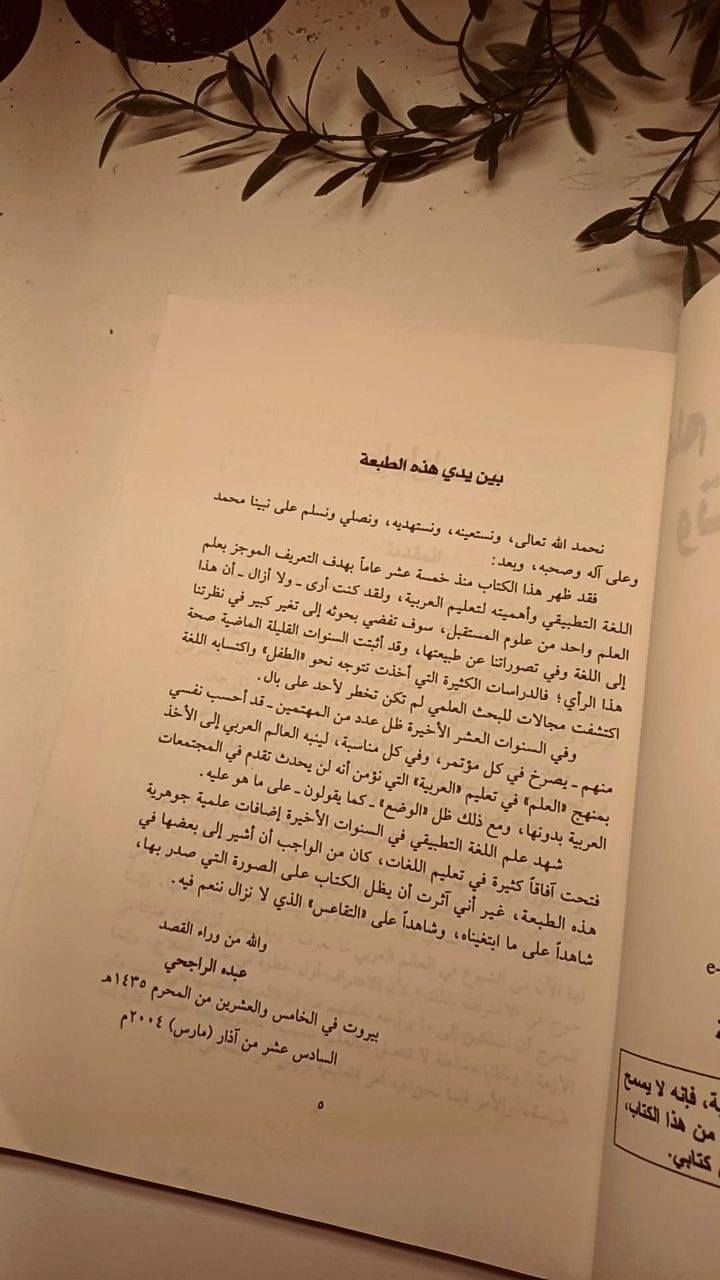 بين يدي هذه الطبعة
نحمد الله تعالى، ونستعينه، ونستهديه، ونصلي ونسلم على نبينا محمد
وعلى آله وصحبه، وبعد:
فقد ظهر هذا الكتاب منذ خمسة عشر عاماً بهدف التعريف الموجز بعلم
اللغة التطبيقي وأهميته لتعليم العربية، ولقد كنت أرى ـ ولا أزال ـ أن هذا
العلم واحد من علوم المستقبل، سوف تفضي بحوثه إلى تغير كبير في نظرتنا
إلى اللغة وفي تصوراتنا عن طبيعتها، وقد أثبتت السنوات القليلة الماضية صحة
هذا الرأي؛ فالدراسات الكثيرة التي أخذت تتوجه نحو «الطفل» واكتسابه اللغة
اكتشفت مجالات للبحث العلمي لم تكن تخطر لأحد على بال.
وفي السنوات العشر الأخيرة ظل عدد من المهتمين ـ قد أحسب نفسي
منهم ـ يصرخ في كل مؤتمر، وفي كل مناسبة، لينبه العالم العربي إلى الأخذ
بمنهج «العلم» في تعليم «العربية» التي نؤمن أنه لن يحدث تقدم في المجتمعات
العربية بدونها، ومع ذلك ظل «الوضع» ـ كما يقولون ـ على ما هو عليه.
شهد علم اللغة التطبيقي في السنوات الأخيرة إضافات علمية جوهرية
فتحت آفاقاً كثيرة في تعليم اللغات، كان من الواجب أن أشير إلى بعضها في
هذه الطبعة، غير أني آثرت أن يظل الكتاب على الصورة التي صدر بها،
شاهداً على ما ابتغيناه، وشاهداً على «التقاعس» الذي لا نزال ننعم فيه.
والله من وراء القصد
عبده الراجحي
بيروت في الخامس والعشرين من المحرم ١٤٣٥هـ
السادس عشر من آذار (مارس) ٢٠٠٤م
٥
e-
فإنه لا يسمع
من هذا الكتاب،
كتابي.